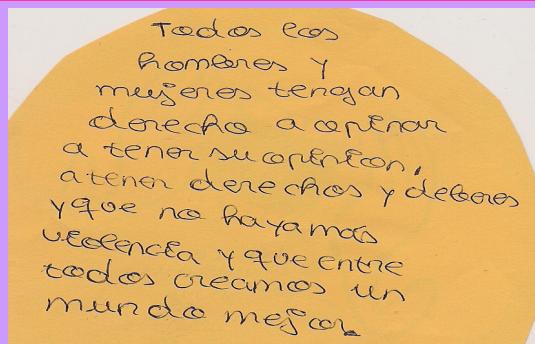 Todos los
hombres y
mujeres tengan
derecho a opinar
a tener su opinion,
a tener derechos y deberes
y que no haya mas
violencia y que entre
todos creamos un
mundo mejor.